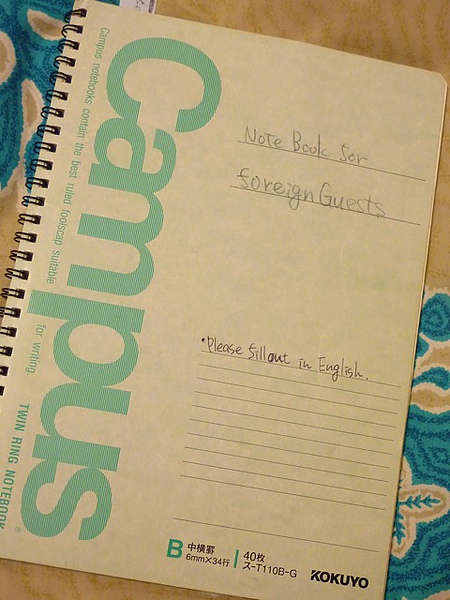 Campus
Campus notebooks contain the best ruled foolscap suitable for writing.
TWIN RING NOTEBOOK
Note Book for
foreign Guests
•Please fillout in English.
B 中横罫
6mm×34行
40枚
ス-T110B-G
KOKUYO